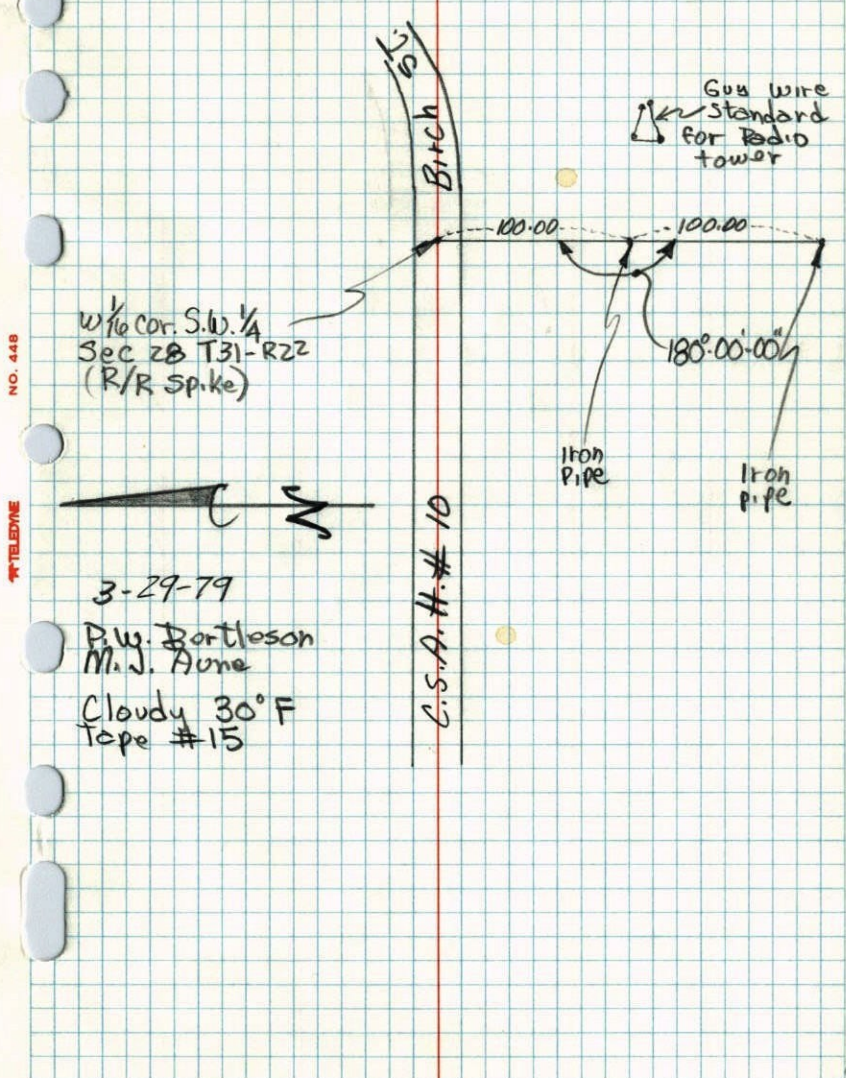 Birch St.
Guy Wire
Standard
for Radio
tower
100.00
100.00
W 1/16 Cor. S.W. 1/4
Sec 28 T31-R22
(R/R Spike)
180°-00'-00"
Iron
pipe
Iron
pipe
N
C.S.A.H.# 10
3-29-79
P.W. Bortleson
M.J. Aune
Cloudy 30°F
Tape #15
NO. 448
TELEDYNE